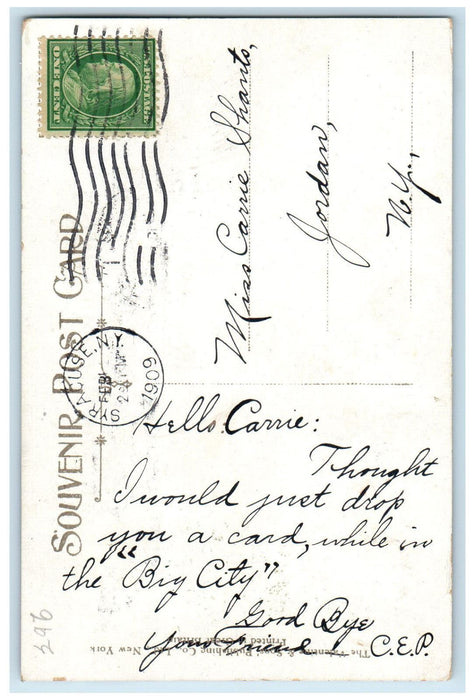 ONE CENT
U.S. POSTAGE
SOUVENIR POST CARD
SYRACUSE, N.Y.
FEB
2
1909
Miss Carrie Shants,
Jordan,
N.Y.,
Hello Carrie:
Thought
I would just drop
you a card, while in
the "Big City"
Good Bye
Your friend C.E.P.
The Valentine & Sons' Publishing Co., Ltd., New York
Printed in Great Britain
296